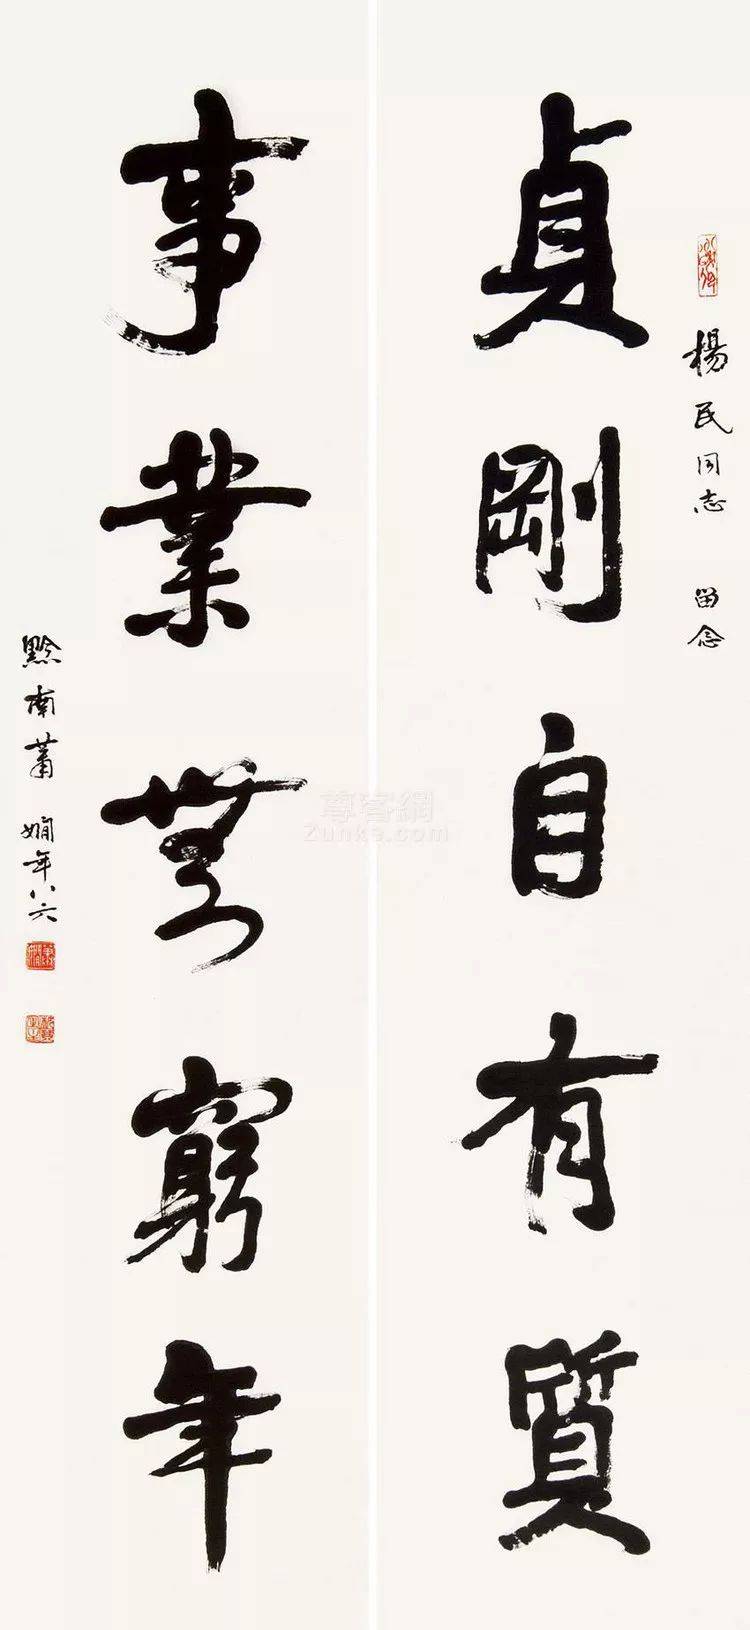 貞剛自有質
楊民同志 留念
事業無窮年
黔南蕭嫻年八六
尊客網
Zunke.com